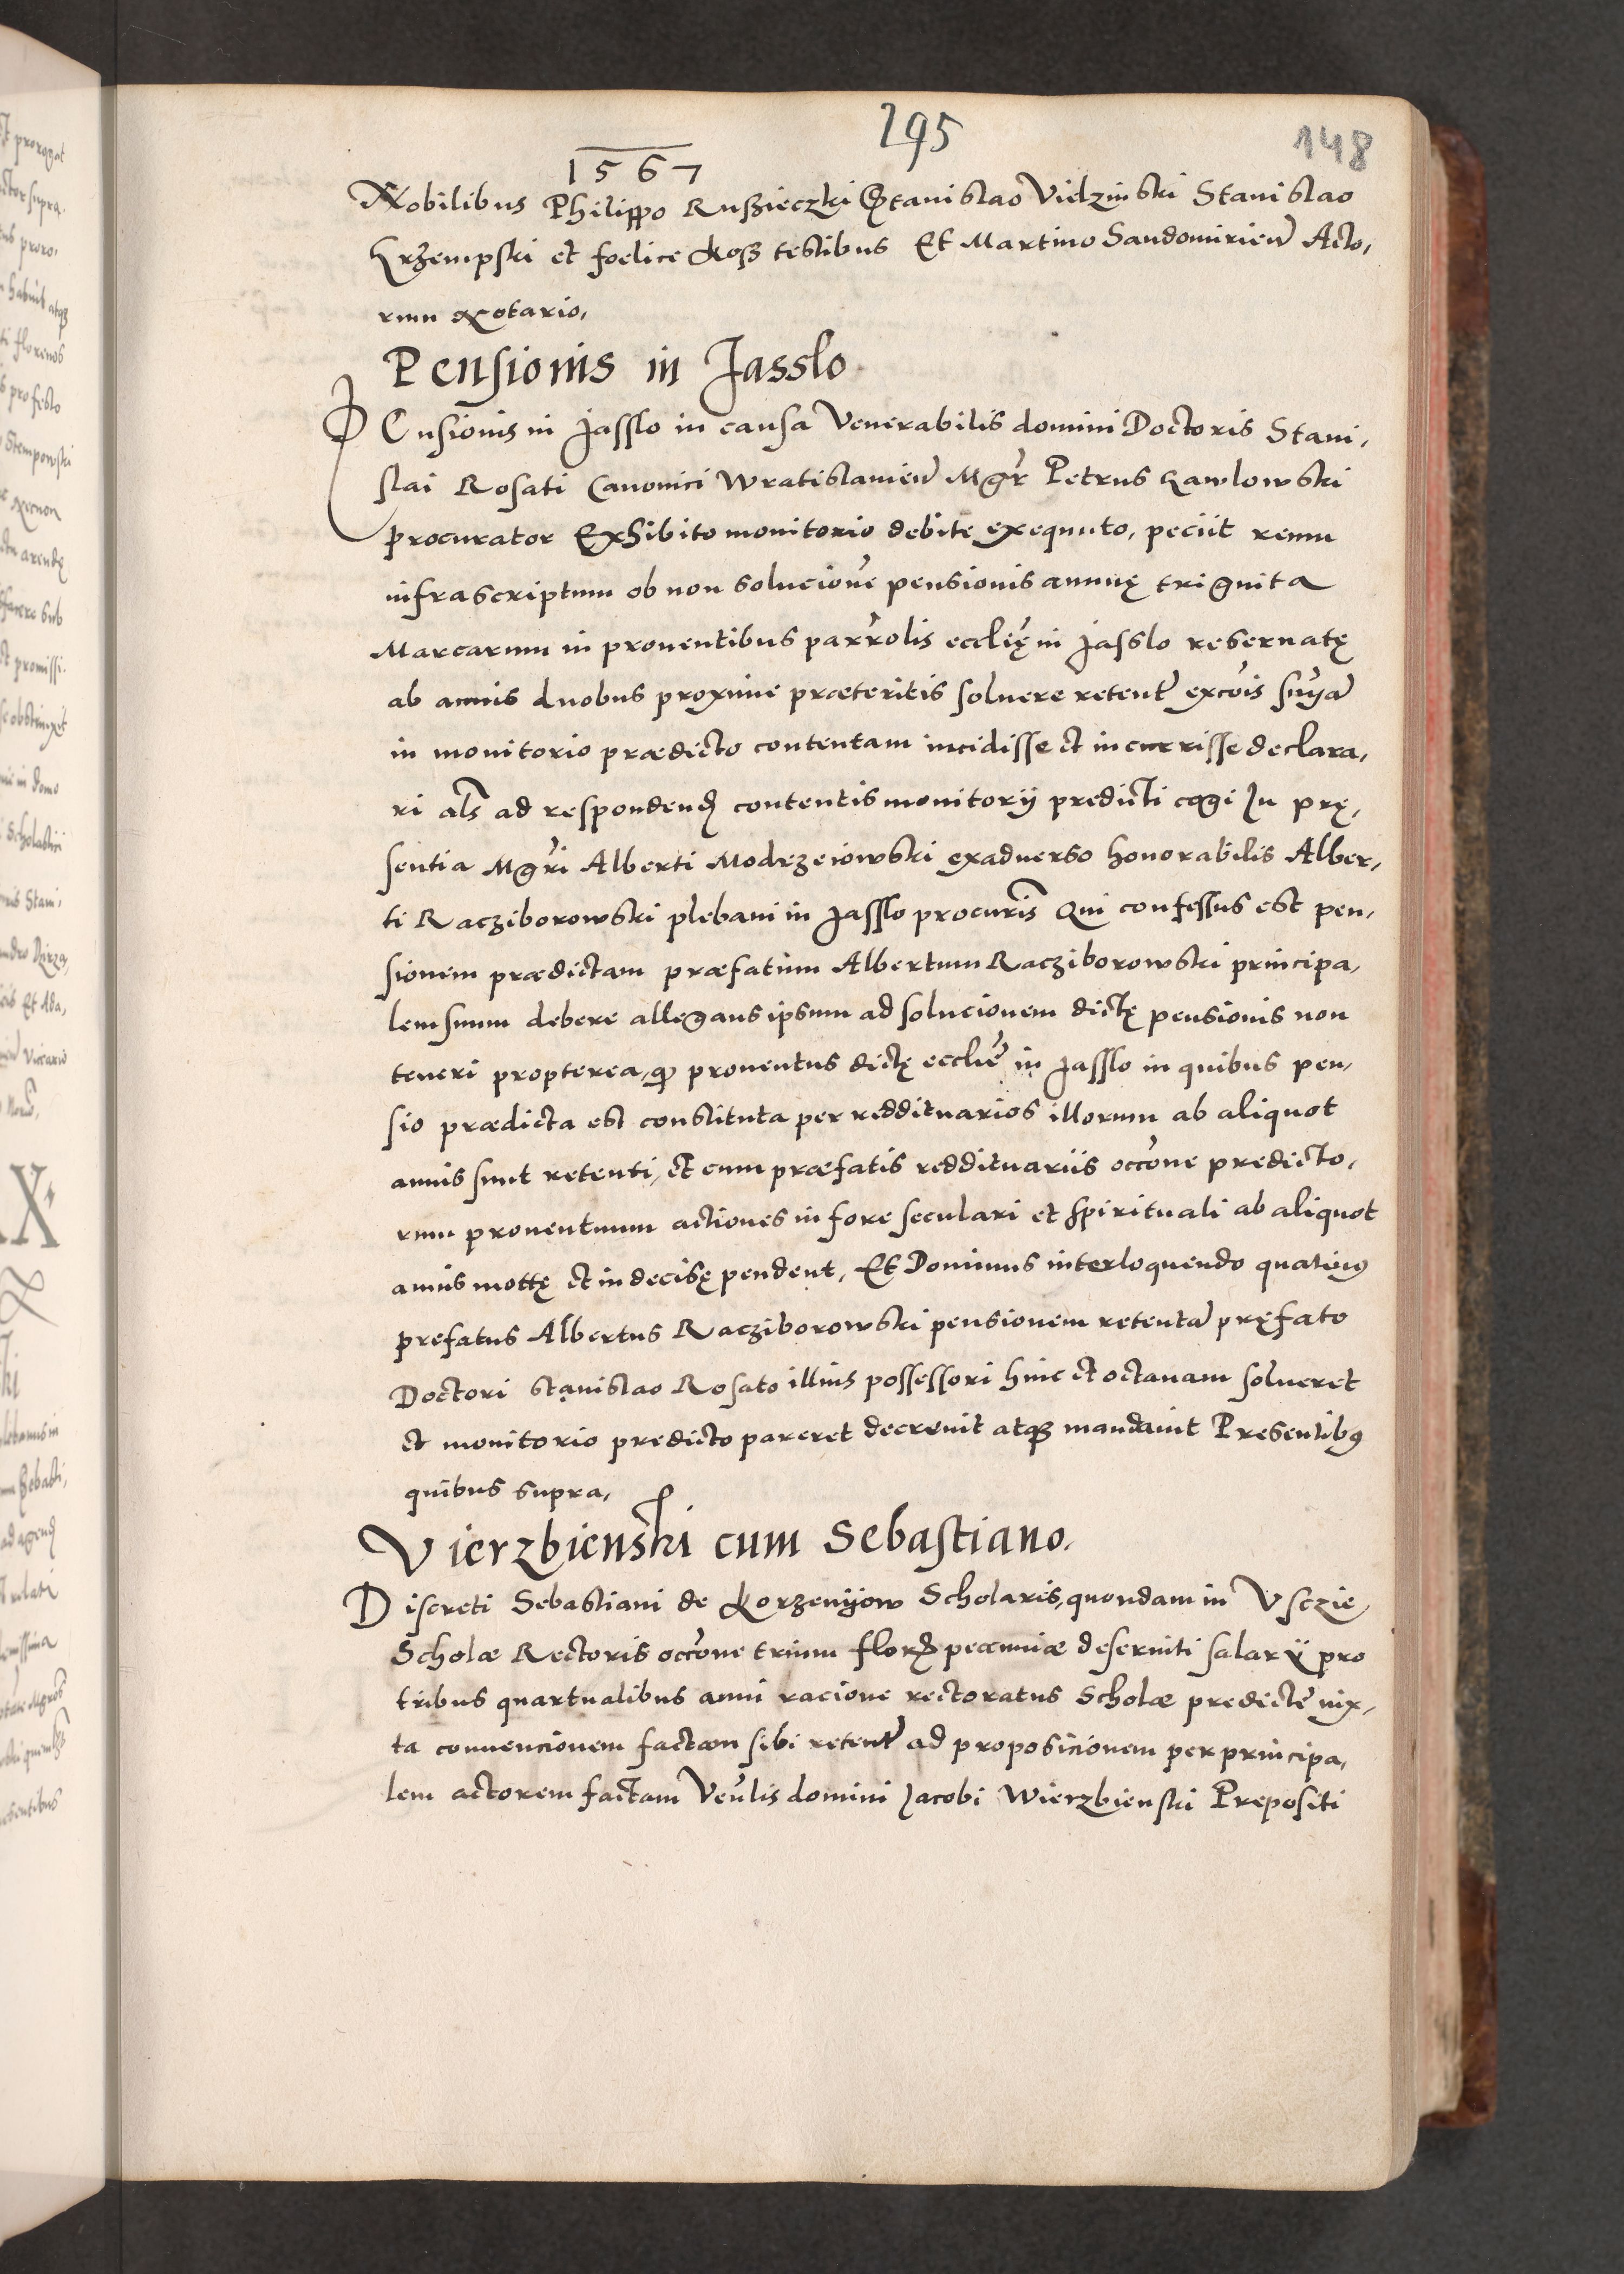 295
148
1567
Nobilibus Philippo Ruszieczki Stanislao Vielzinski Stanislao
Krzempski et foelice Kosz testibus Et Martino Sandomirien̄ Acto,
rum Notario,
Pensionis in Jasslo
PEnsionis in Jasslo in causa Venerabilis domini Doctoris Stani,
slai Rosati Canonici Wratislauien̄ Mgr̄ Petrus Kawlowski
procurator Exhibito monitorio debite exequuto, peciit reum
infrascriptum ob non solucionē pensionis annuę triginta
Marcarum in prouentibus parr̄olis eccl̄ię in Jasslo reseruatę
ab annis duobus proxime præteritis soluere retent̄ excōis sn̄ya
in monitorio prædicto contentam incidisse et incurrisse declara,
ri als̄ ad respondend̄ contentis monitorij predicti cogi In prę,
sentia Mgr̄i Alberti Modrzeiowski exaduerso honorabilis Alber,
ti Racziborowski plebani in Jasslo procur̄is Qui confessus est pen,
sionem prædictam præfatum Albertum Racziborowski principa,
lem suum debere allegans ipsum ad solucionem dictę pensionis non
teneri propterea, qp prouentus dictę eccliē in Jasslo in quibus pen,
sio prædicta est constituta per reddituarios illorum ab aliquot
annis sunt retenti, et cum præfatis reddituariis occōne predicto,
rum prouentuum actiones in fore seculari et spirituali ab aliquot
annis mottę et indecisę pendent, Et Dominus interloquendo quatinus
prefatus Albertus Racziborowski pensionem retentā pręfato
Doctori Stanislao Rosato illius possessori hinc et octauam solueret
et monitorio predicto pareret decreuit atqz mandauit Presentibus
quibus supra,
Vierzbienski cum Sebastiano.
Discreti Sebastiani de Korzenijow Scholaris, quondam in Vsczie
Scholæ Rectoris occōne trium flor̄ pecuniæ deseruiti salarij pro
tribus quartualibus anni racione rectoratus Scholæ predictę iux,
ta conuencionem factam sibi retent̄ ad proposicionem per principa,
lem actorem factam Ven̄lis domini Jacobi Wierzbienski Prepositi